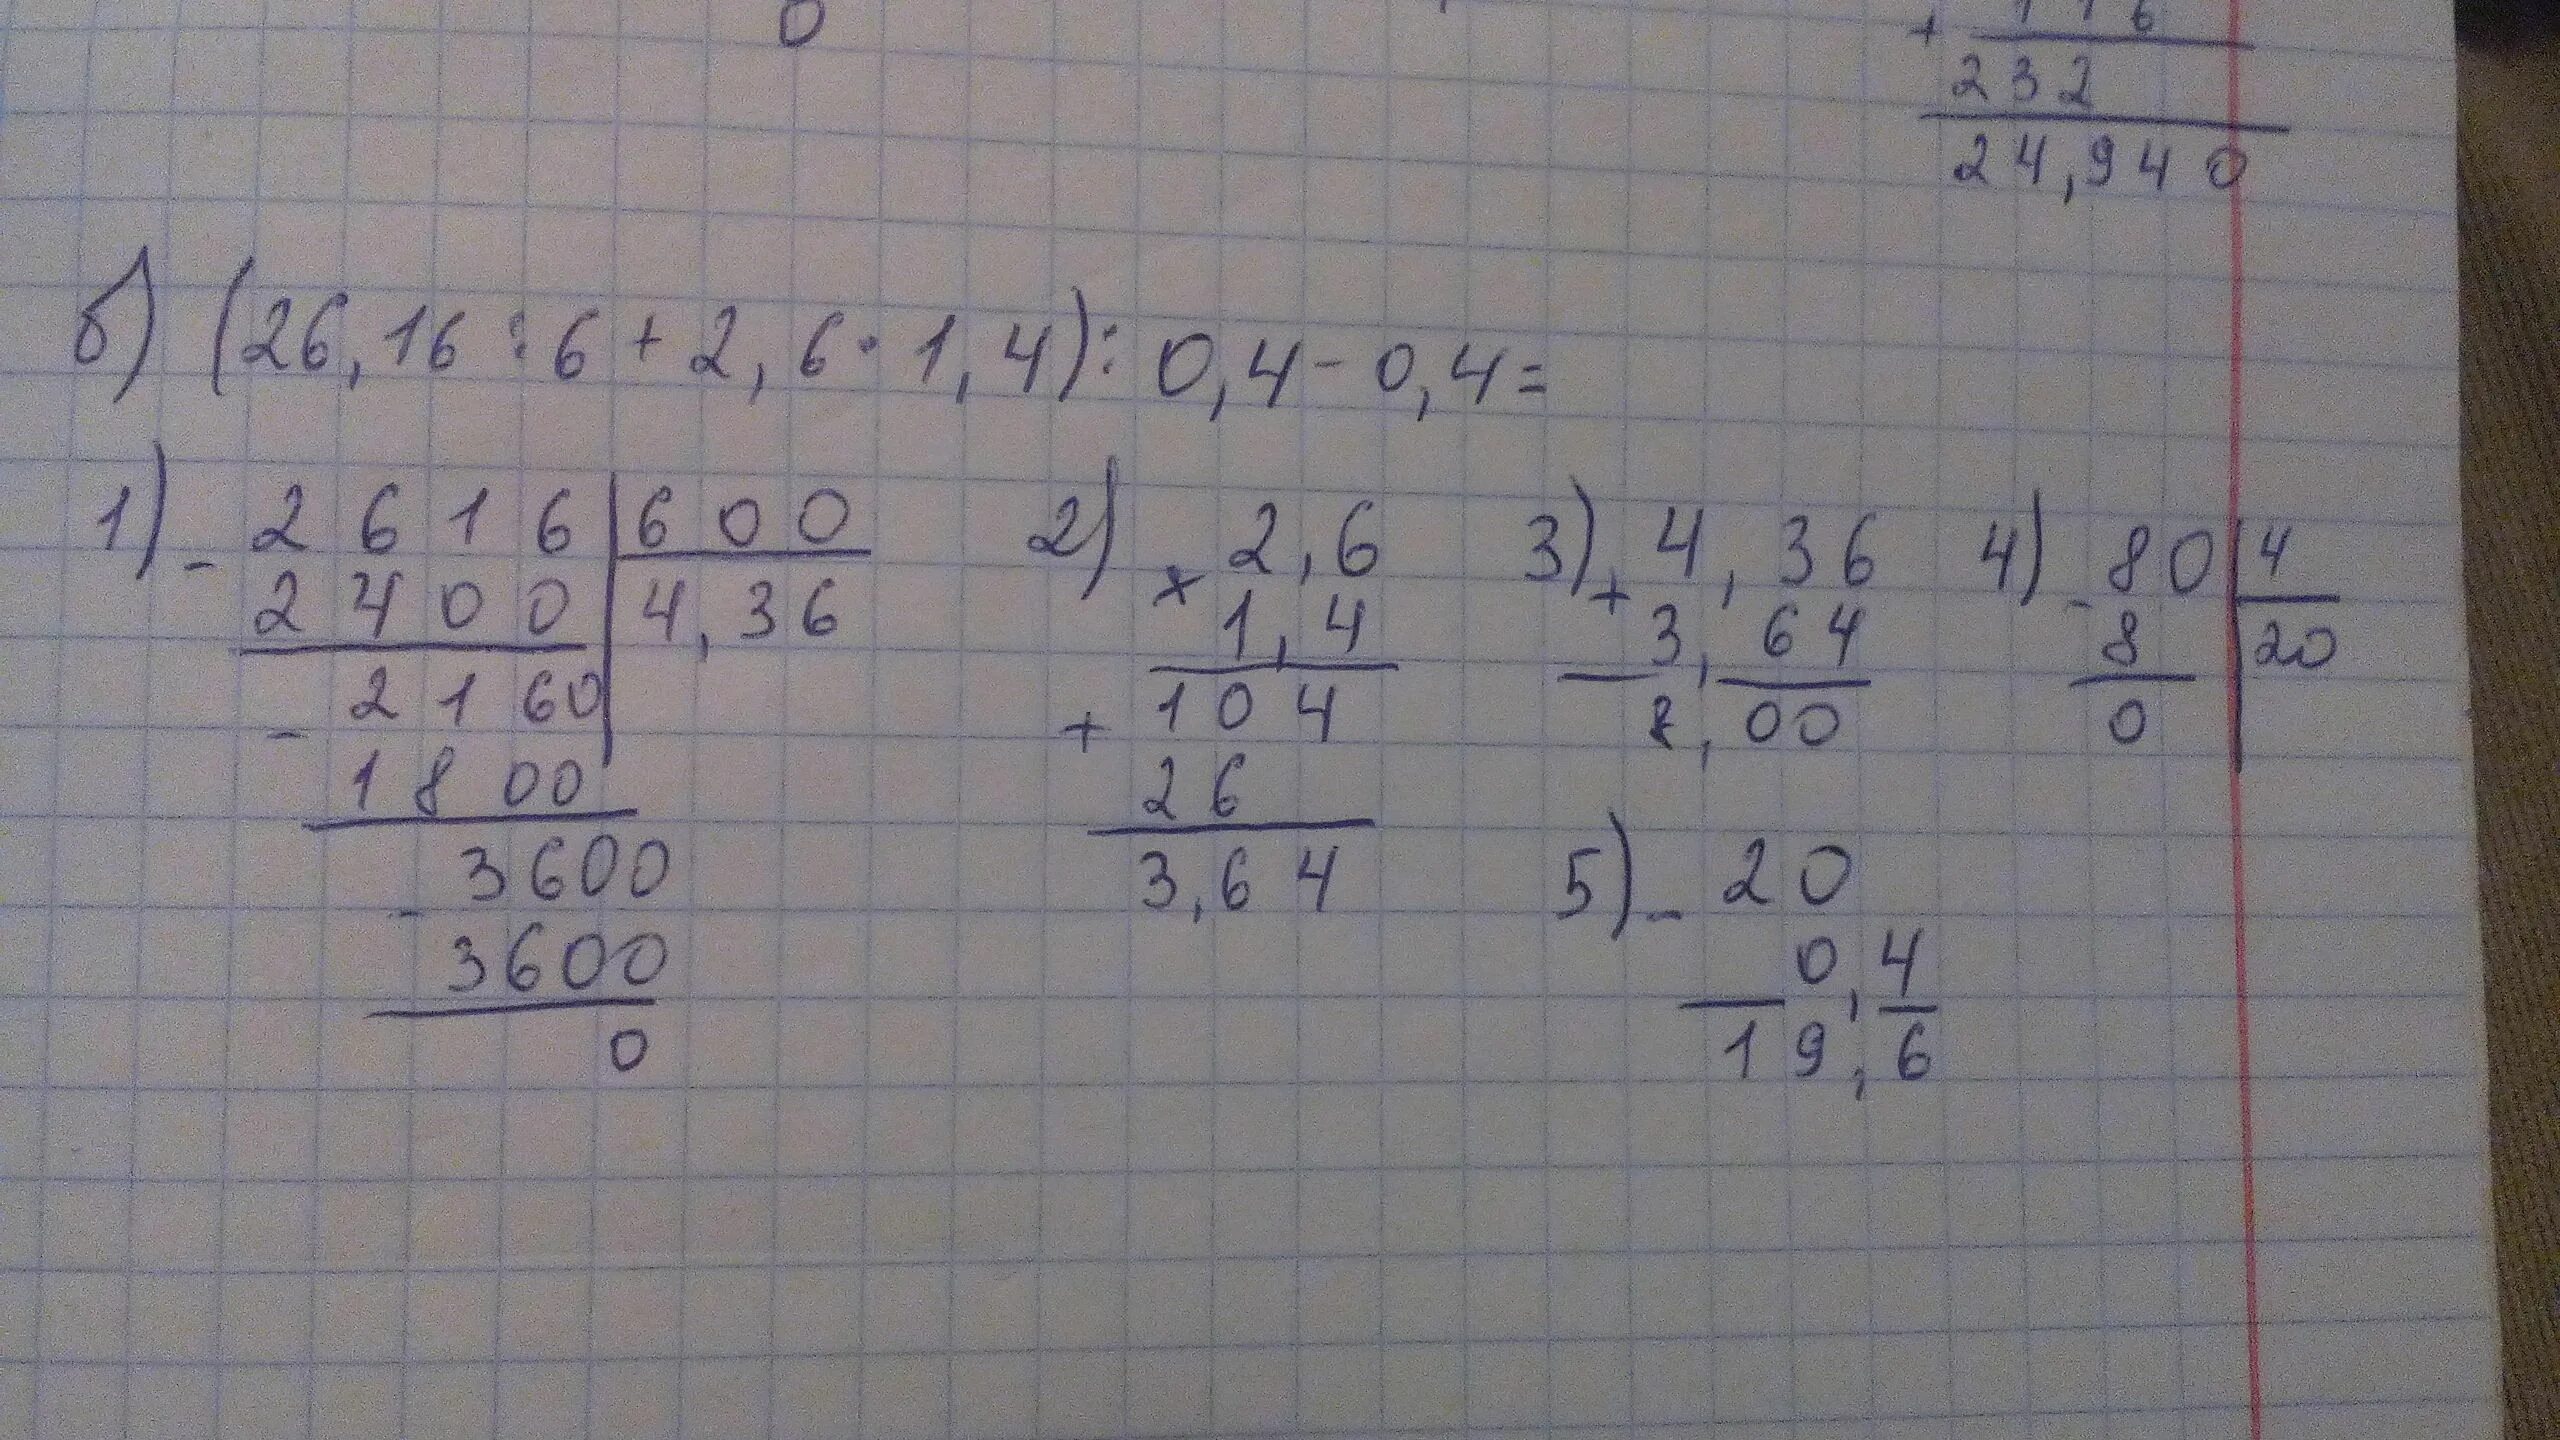 0
+ 116
232
24,940
б) (26,16 : 6 + 2,6 · 1,4) : 0,4 - 0,4 =
1) - 2616 | 600
2400 | 4,36
- 2160
1800
- 3600
3600
0
2) × 2,6
1,4
+ 104
26
3,64
3) + 4,36
3,64
8,00
4) - 80 | 4
8 | 20
0
5) - 20
0,4
19,6